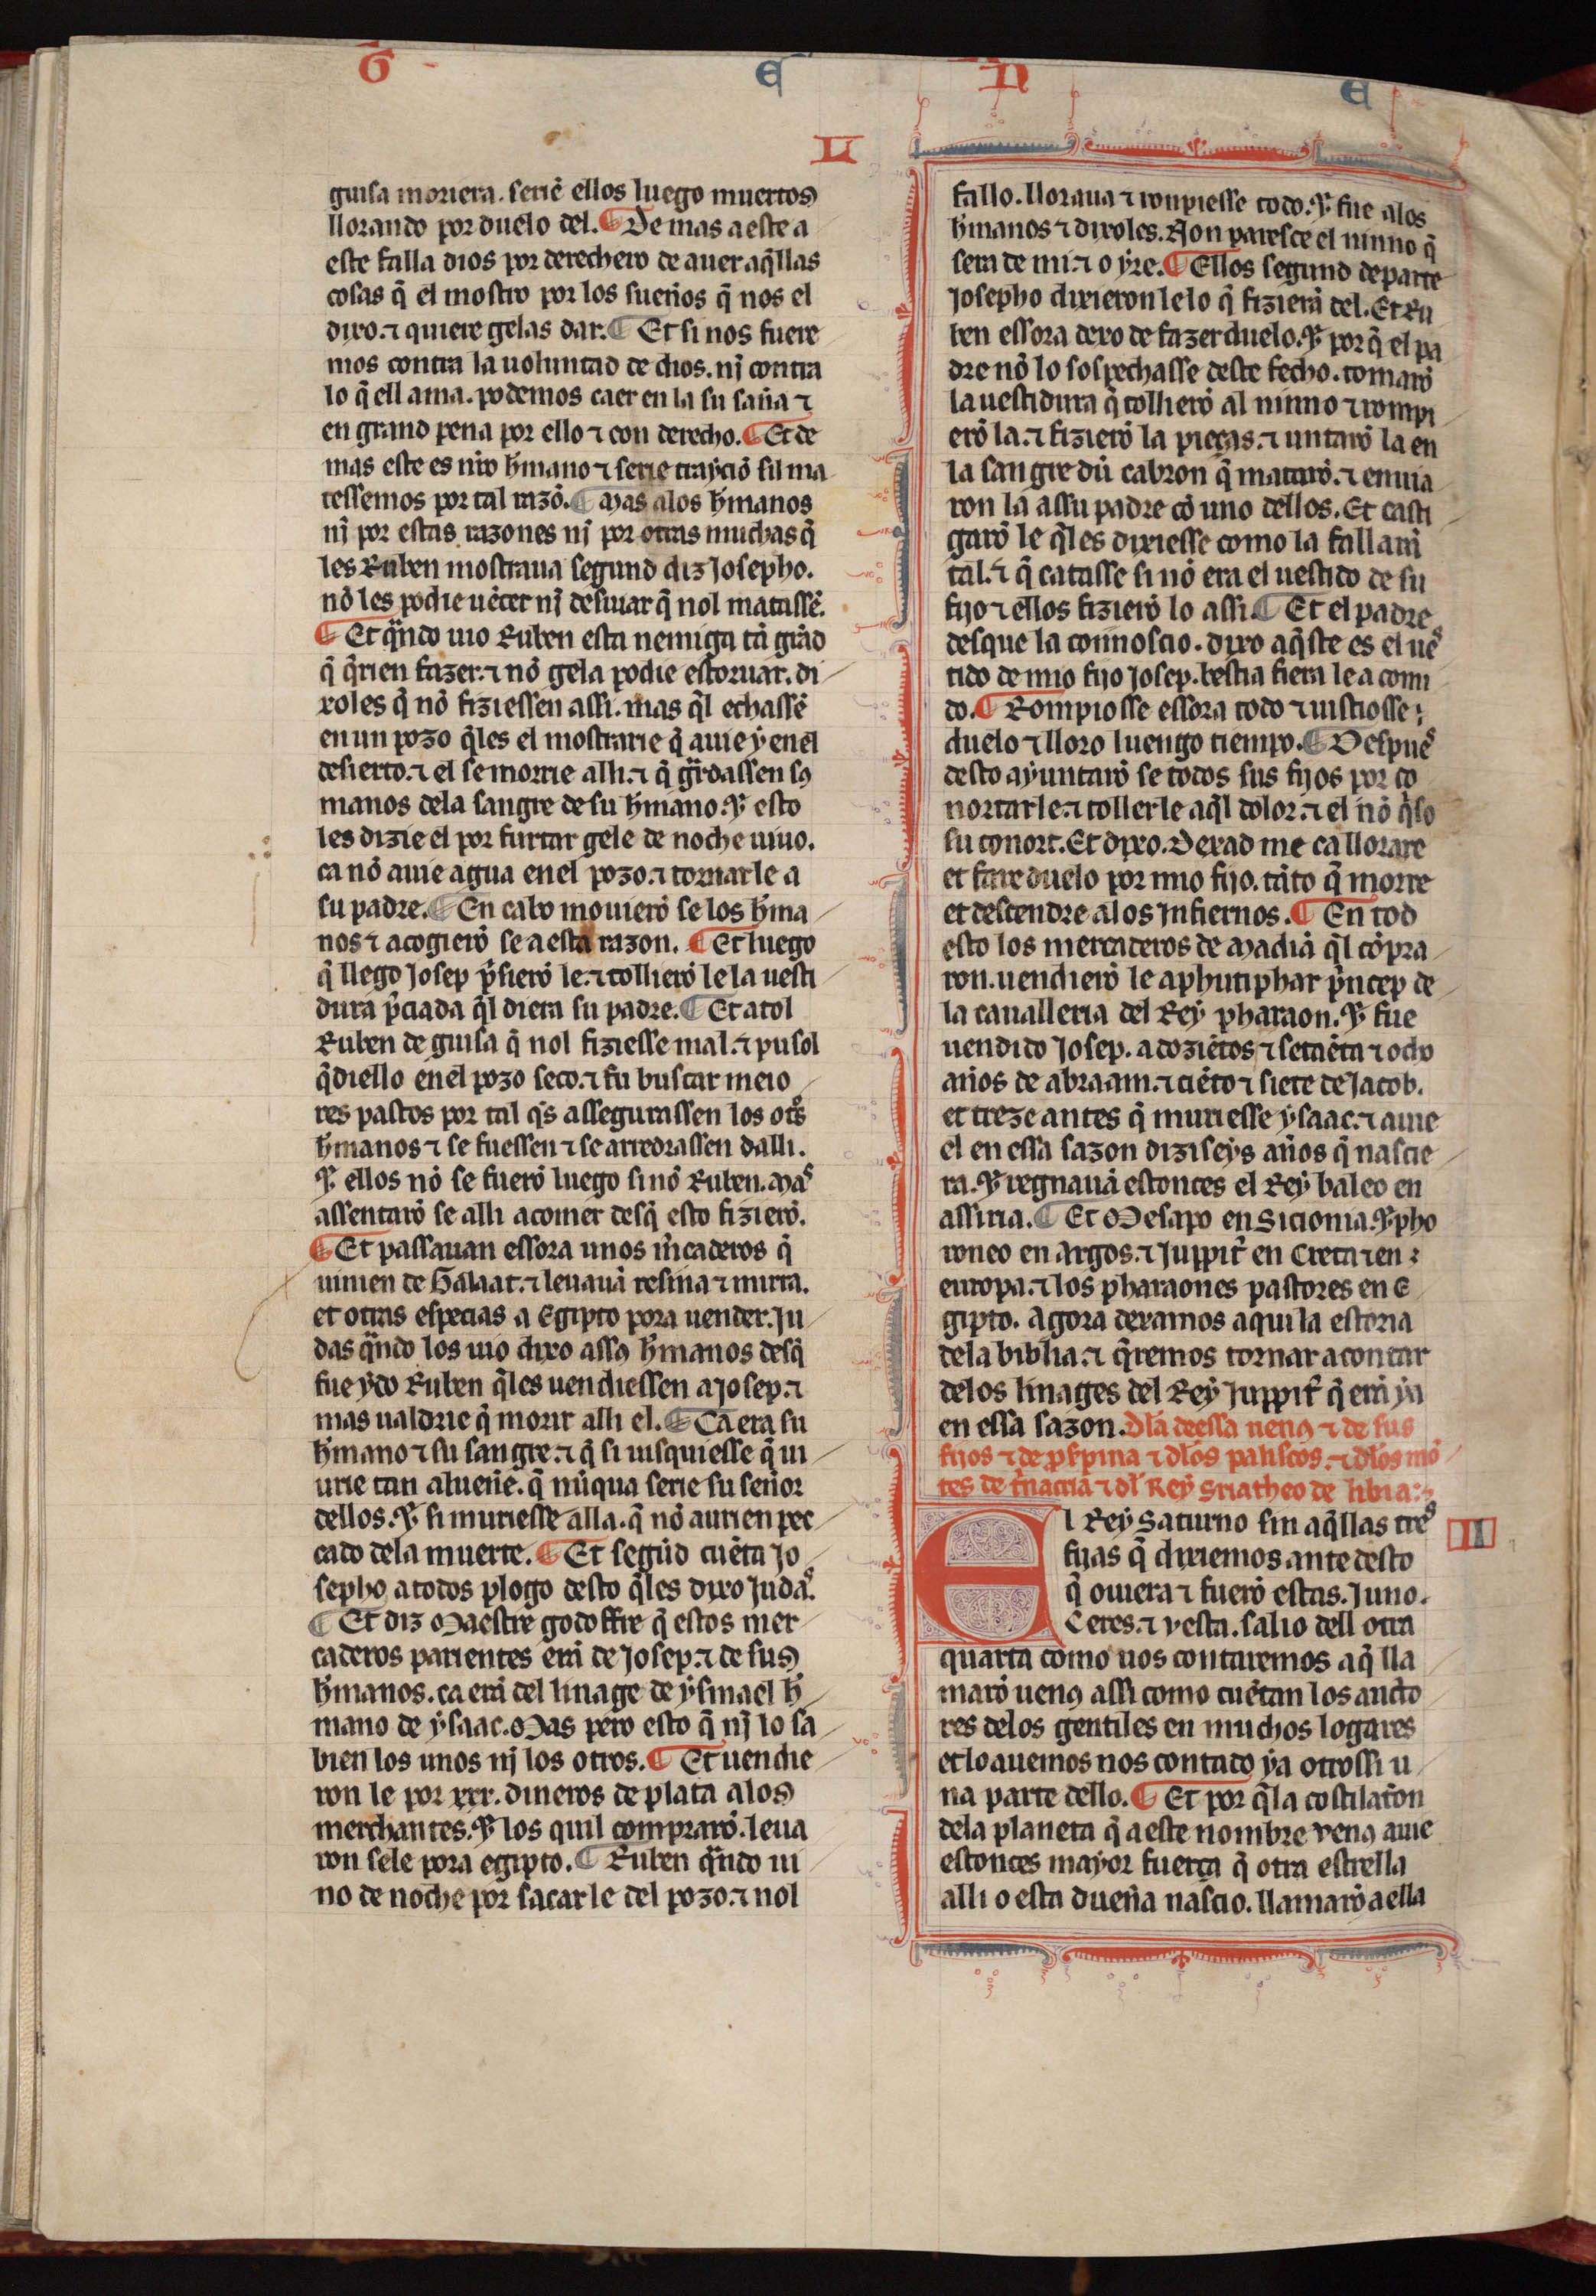 G E N E
LI
guisa moriera. seriẽ ellos luego muertos
llorando por duelo del. ¶ De mas a este a
este falla dios por derechero de auer aq̃llas
cosas q̃ el mostro por los sueños q̃ nos el
dixo. ⁊ quiere gelas dar. ¶ Et si nos fuere
mos contra la uoluntad de dios. nj contra
lo q̃ ell ama. podemos caer en la su saña ⁊
en grand pena por ello ⁊ con derecho. ¶ Et de
mas este es nr̃o hr̃mano ⁊ serie trayciõ sil ma
tessemos por tal razõ. ¶ Mas alos hr̃manos
nj por estas razones nj por otras muchas q̃
les Ruben mostraua segund diz Josepho.
nõ les podie uẽcer nj desuiar q̃ nol matassẽ.
¶ Et q̃ndo uio Ruben esta nemiga tã grãd
q̃ q̃rien fazer. ⁊ nõ gela podie estoruar. di
xoles q̃ nõ fiziessen assi. mas q̃l echassẽ
en un pozo q̃les el mostrarie q̃ auie ẏ enel
desierto. ⁊ el se morrie alli. ⁊ q̃ gr̃dassen sꝯ
manos dela sangre de su hr̃mano. Ꝩ esto
les dizie el por furtar gele de noche uiuo.
ca nõ auie agua enel pozo. ⁊ tornarle a
su padre. ¶ En cabo mouierõ se los hr̃ma
nos ⁊ acogierõ se a esta razon. ¶ Et luego
q̃ llego Josep p̃sierõ le. ⁊ tollierõ le la uesti
dura p̃ciada q̃l diera su padre. ¶ Et atol
Ruben de guisa q̃ nol fiziesse mal. ⁊ pusol
q̃diello enel pozo seco. ⁊ fu buscar meio
res pastos por tal q̃s assegurassen los otr̃s
hr̃manos ⁊ se fuessen ⁊ se arredrassen dalli.
Ꝩ ellos nõ se fuerõ luego sinõ Ruben. Mas
assentarõ se alli acomer desq̃ esto fizierõ.
¶ Et passauan essora unos m̃caderos q̃
uinien de Galaat. ⁊ leuauã resina ⁊ mirra.
et otras especias a Egipto pora uender. Ju
das q̃ndo los uio dixo assꝯ hr̃manos desq̃
fue ẏdo Ruben q̃les uendiessen a Josep. ⁊
mas ualdrie q̃ morir alli el. ¶ Ca era su
hr̃mano ⁊ su sangre. ⁊ q̃ si uisquiesse q̃ ui
urie tan alueñe. q̃ nũqua serie su señor
dellos. Ꝩ si muriesse alla. q̃ nõ aurien pec
cado dela muerte. ¶ Et segũd cuẽta Jo
sepho a todos plogo desto q̃les dixo Judas.
¶ Et diz Maestre godoffre q̃ estos mer
caderos parientes erã de Josep. ⁊ de sus
hr̃manos. ca erã del linage de ẏsmael hr̃
mano de ẏsaac. Mas pero esto q̃ nj lo sa
bien los unos nj los otros. ¶ Et uendie
ron le por xxx. dineros de plata alos
merchantes. Ꝩ los quil comprarõ. leua
ron sele pora egipto. ¶ Ruben q̃ndo ui
no de noche por sacarle del pozo. ⁊ nol
fallo. lloraua ⁊ ronpiesse todo. Ꝩ fue alos
hr̃manos ⁊ dixoles. Non paresce el ninno q̃
sera de mi. ⁊ o ẏre. ¶ Ellos segund departe
Josepho dixieron lelo q̃ fizierã del. Et Ru
ben essora dexo de fazer duelo. Ꝩ por q̃ el pa
dre nõ lo sospechasse deste fecho. tomarõ
la uestidura q̃ tollierõ al ninno ⁊ rompi
erõ la. ⁊ fizierõ la pieças. ⁊ untarõ la en
la sangre dũ cabron q̃ matarõ. ⁊ enuia
ron la assu padre cõ uno dellos. Et casti
garõ le q̃les dixiesse como la fallarã
tal. ⁊ q̃ catasse si nõ era el uestido de su
fijo ⁊ ellos fizierõ lo assi. ¶ Et el padre
desque la connoscio. dixo aq̃ste es el ues
tido de mio fijo Josep. bestia fiera le a comi
do. ¶ Rompiosse essora todo ⁊ uistiosse :
duelo ⁊ lloro luengo tiempo. ¶ Despues
desto aẏuntarõ se todos sus fijos por co
nortarle. ⁊ tollerle aq̃l dolor. ⁊ el nõ q̃so
su conort. Et dixo. Dexad me ca llorare
et fare duelo por mio fijo. tãto q̃ morre
et descendre alos Infiernos. ¶ En tod
esto los mercaderos de Madiã q̃l cõpra
ron. uendierõ le a phutiphar p̃ncep de
la caualleria del Reẏ pharaon. Ꝩ fue
uendido Josep. a doziẽtos ⁊ setaẽta ⁊ ocho
años de abraam. ⁊ ciẽto ⁊ siete de Jacob.
et treze antes q̃ muriesse ẏsaac. ⁊ auie
el en essa sazon diziseẏs años q̃ nascie
ra. Ꝩ regnauã estonces el Reẏ baleo en
assiria. ¶ Et Mesapo en Sicionia. Ꝩ pho
roneo en Argos. ⁊ Juppit̃ en Creta ⁊ en :
europa. ⁊ los pharaones pastores en E
gipto. Agora dexamos aqui la estoria
dela biblia. ⁊ q̃remos tornar a contar
delos linages del Reẏ Juppit̃ q̃ erã ẏa
en essa sazon. Dla deessa uenꝯ ⁊ de sus
fijos ⁊ de p̃serpina ⁊ dlos paliscos. ⁊ dlos mõ
tes de t̃nacria ⁊ dl Reẏ Sriatheo de libia :
II
El Reẏ Saturno sin aq̃llas tres
fijas q̃ dixiemos ante desto
q̃ ouiera ⁊ fuerõ estas. Juno.
Ceres. ⁊ vesta. salio dell otra
quarta como uos contaremos aq̃ lla
marõ uenꝯ assi como cuẽtan los aucto
res delos gentiles en muchos logares
et lo auemos nos contado ẏa otrossi u
na parte dello. ¶ Et por q̃ la costilatiõn
dela planeta q̃ a este nombre venꝯ auie
estonces mayor fuerça q̃ otra estrella
alli o esta dueña nascio. llamarõ a ella